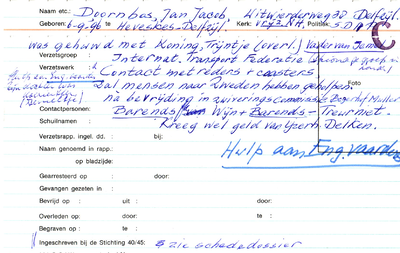 Naam etc.: Doornbos, Jan Jacob Witwerderweg 38 Delfzijl.
te Heveskes-Delfzijl. Kerk: Vrijz. N.H. Politiek: S.D.A.P.
was gehuwd met Koning, Trijntje (overl.) Vader van
Verzetsgroep : Internat. Transport Federatie
Verzetswerk : Contact met reders + coasters
Foto
Zal mensen naar Zweden hebben geholpen.
na bevrijding in zuiveringscommissie
Contactpersonen: Barends Wijn + Barends - Treurniet.
Schuilnaam : Kreeg wel geld van Delken.
Verzetsrapp. ingel. dd. : bij:
Naam genoemd in rapp. :
op bladzijde: Hulp aan Eng.vaarders
Gearresteerd op : door:
Gevangen gezeten in :
Bevrijd op : uit : door:
Overleden op: door: te :
Begraven op : te :
Ingeschreven bij de Stichting 40/45: zie schededossier